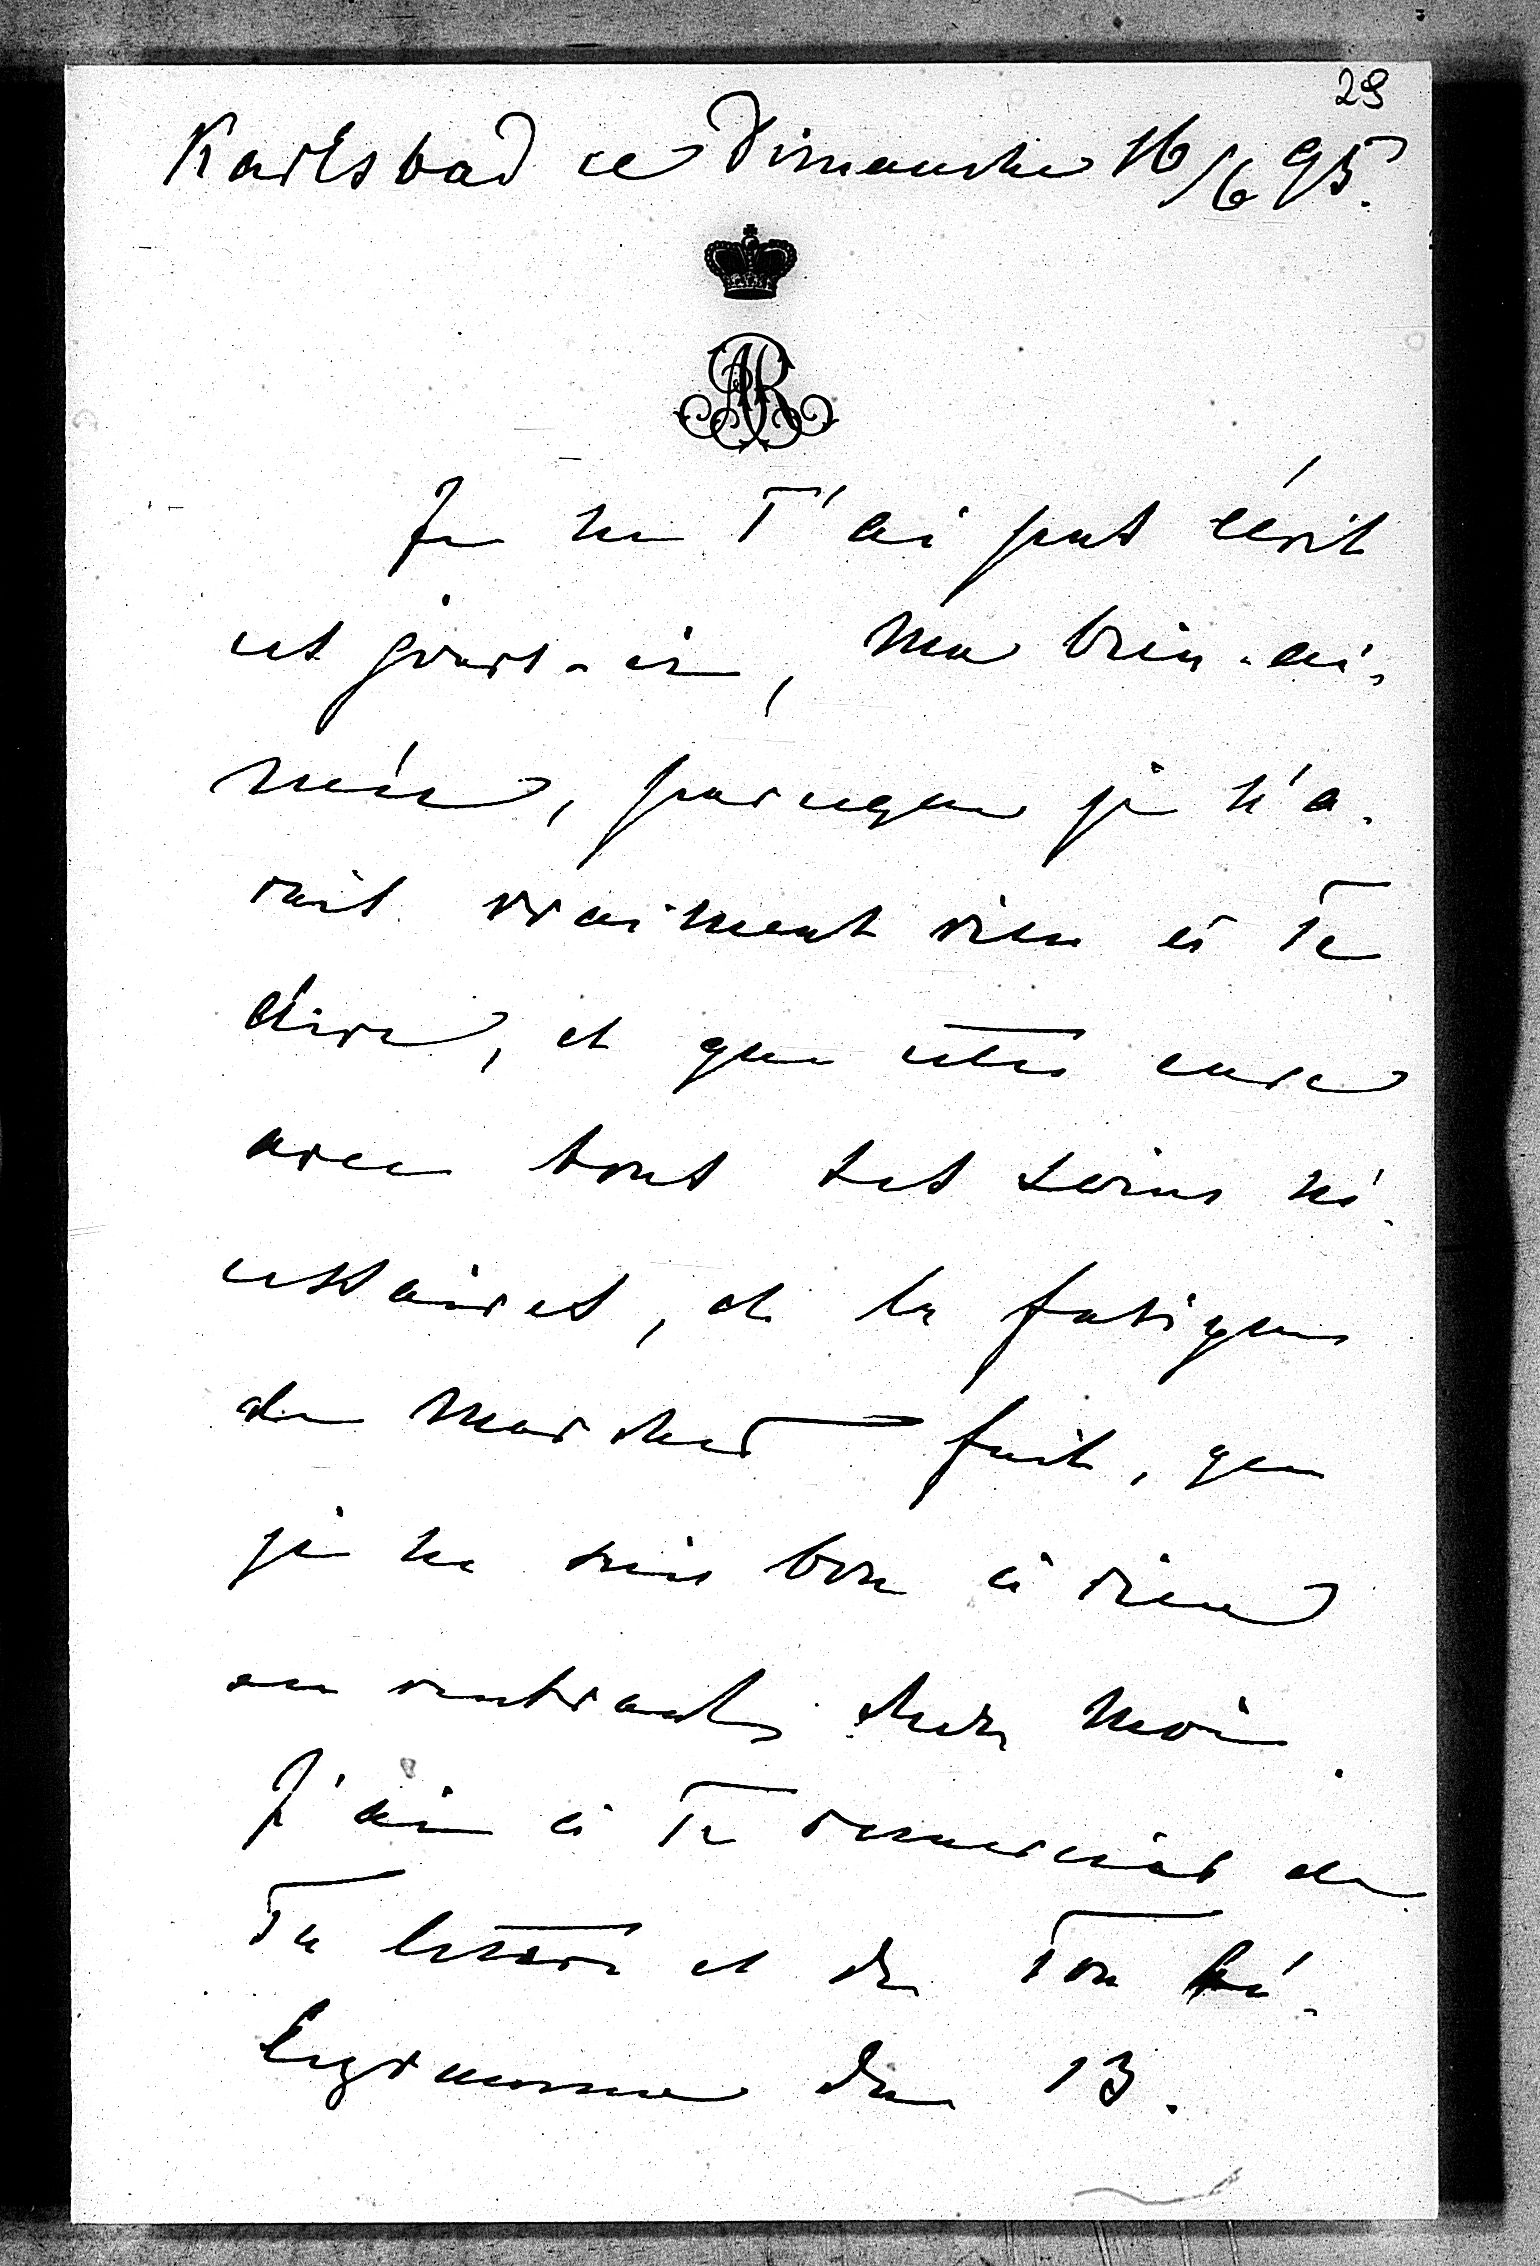 29
Karlsbad ce Dimanche 16/6 95.
AR
Je ne T'ai pas écrit
ces jours-ci, ma bien-ai-
mée, parceque je n'a-
vais vraiment rien à Te
dire, et que cette cure
avec tous ses soins né-
cessaires, et la fatigue
de marcher fait, que
je ne suis bon à rien
en rentrant chez moi.
J'ai à Te remercier de
Ta lettre et de Ton té-
légramme du 13.